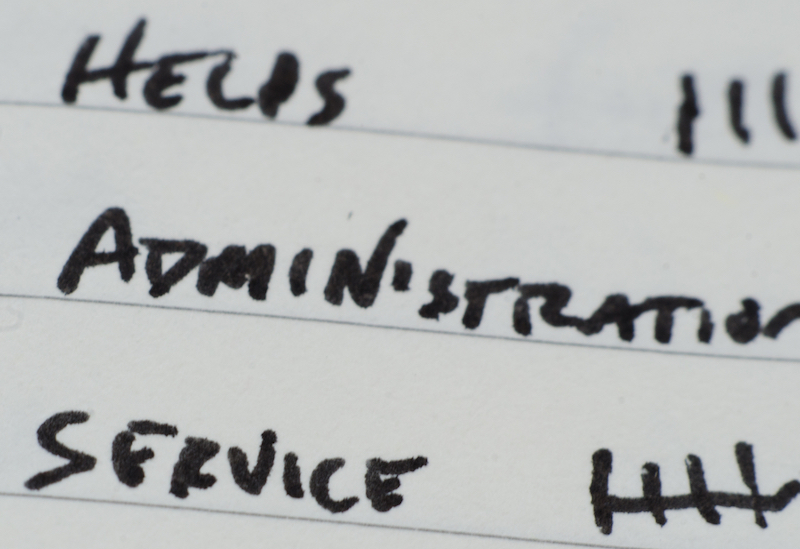 HELPS III
ADMINISTRATION
SERVICE